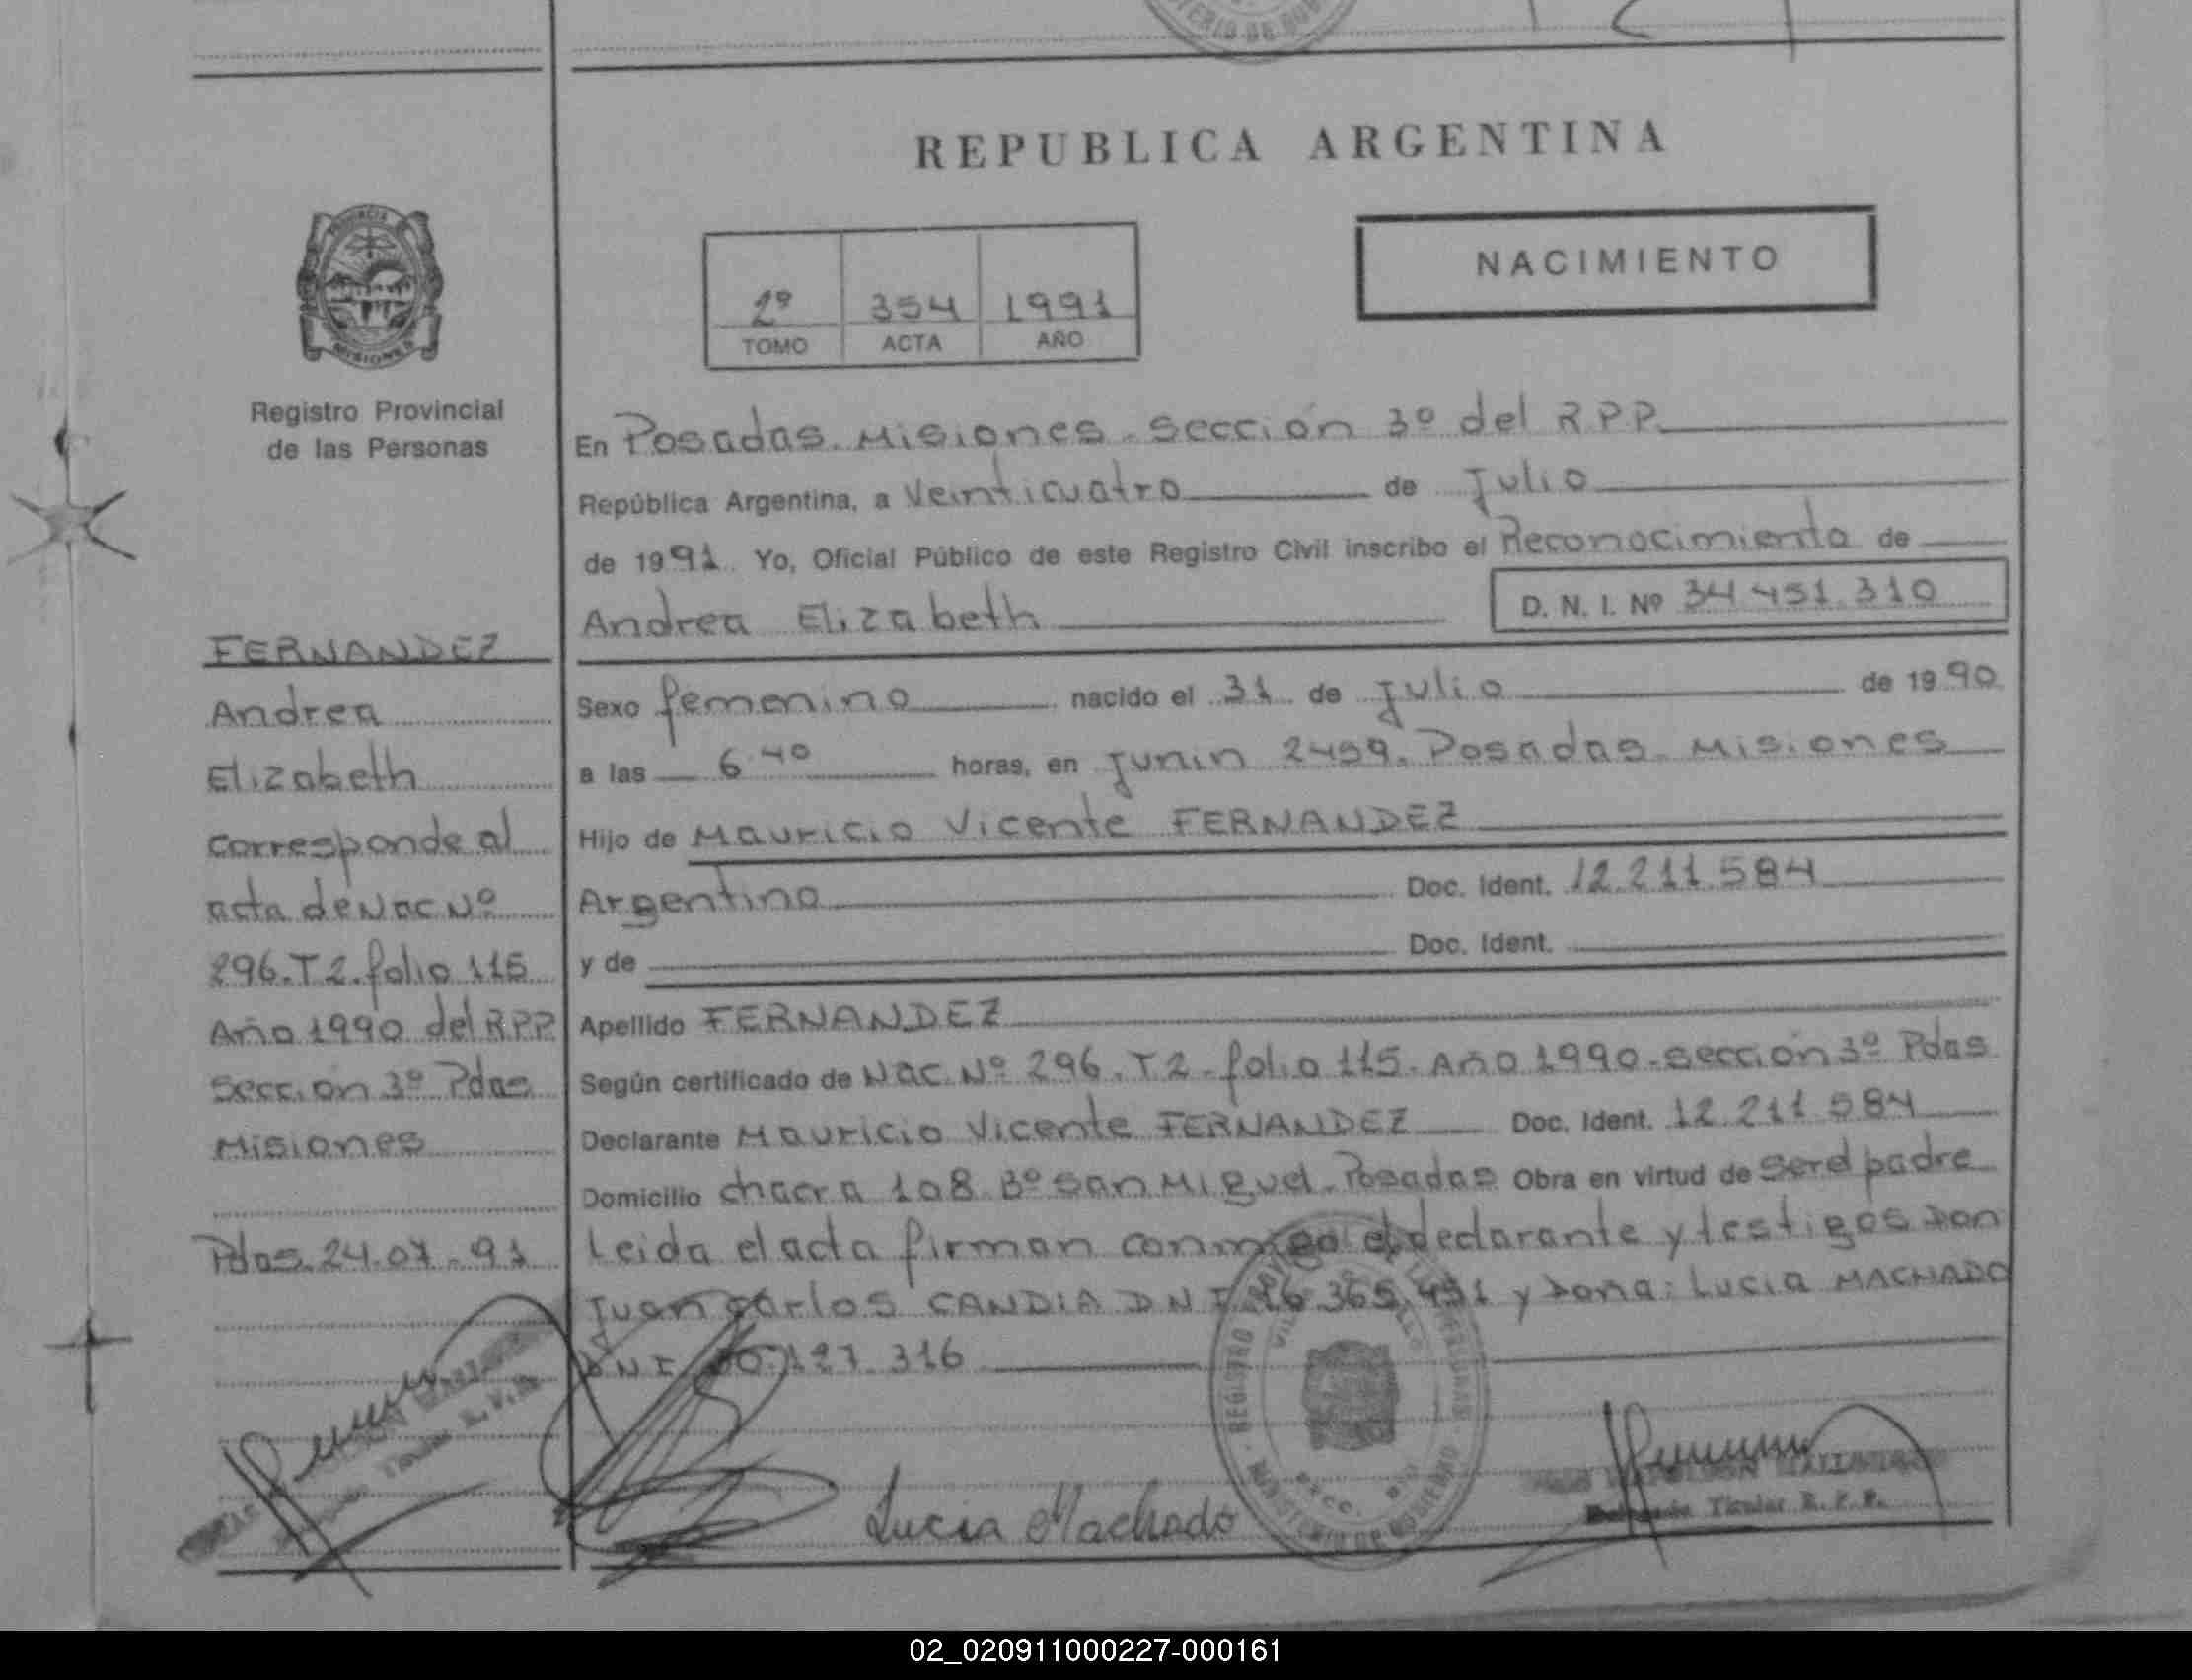 REPUBLICA ARGENTINA
PROVINCIA
MISIONES
Registro Provincial
de las Personas
2º 354 1991
TOMO ACTA AÑO
NACIMIENTO
En Posadas. Misiones. Sección 3º del R.P.P.
República Argentina, a Veinticuatro de Julio
de 1991. Yo, Oficial Público de este Registro Civil inscribo el Reconocimiento de
Andrea Elizabeth D. N. I. Nº 34 451.310
Sexo femenino nacido el 31 de Julio de 1990
a las 6.40 horas, en Junin 2459. Posadas. Misiones
Hijo de Mauricio Vicente FERNANDEZ
Argentino Doc. Ident. 12.211.584
y de Doc. Ident.
Apellido FERNANDEZ
Según certificado de Nac. Nº 296. T 2 - folio 115. Año 1990 - Sección 3º Pdas
Declarante Mauricio Vicente FERNANDEZ Doc. Ident. 12.211.584
Domicilio chacra 108 Bº San Miguel. Posadas Obra en virtud de ser el padre
Leida el acta firman conmigo el declarante y testigos Don
Juan Carlos CANDIA D N I 365 y Doña: Lucia MACHADO
D N I 316
FERNANDEZ
Andrea
Elizabeth
Corresponde al
acta de Nac Nº
296. T 2. folio 115
Año 1990 del R.P.P.
Sección 3º Pdas
Misiones
Pdas. 24.07.91
Lucia Machado
REGISTRO
MINISTERIO DE GOBIERNO
Titular R. P. P.
02_020911000227-000161